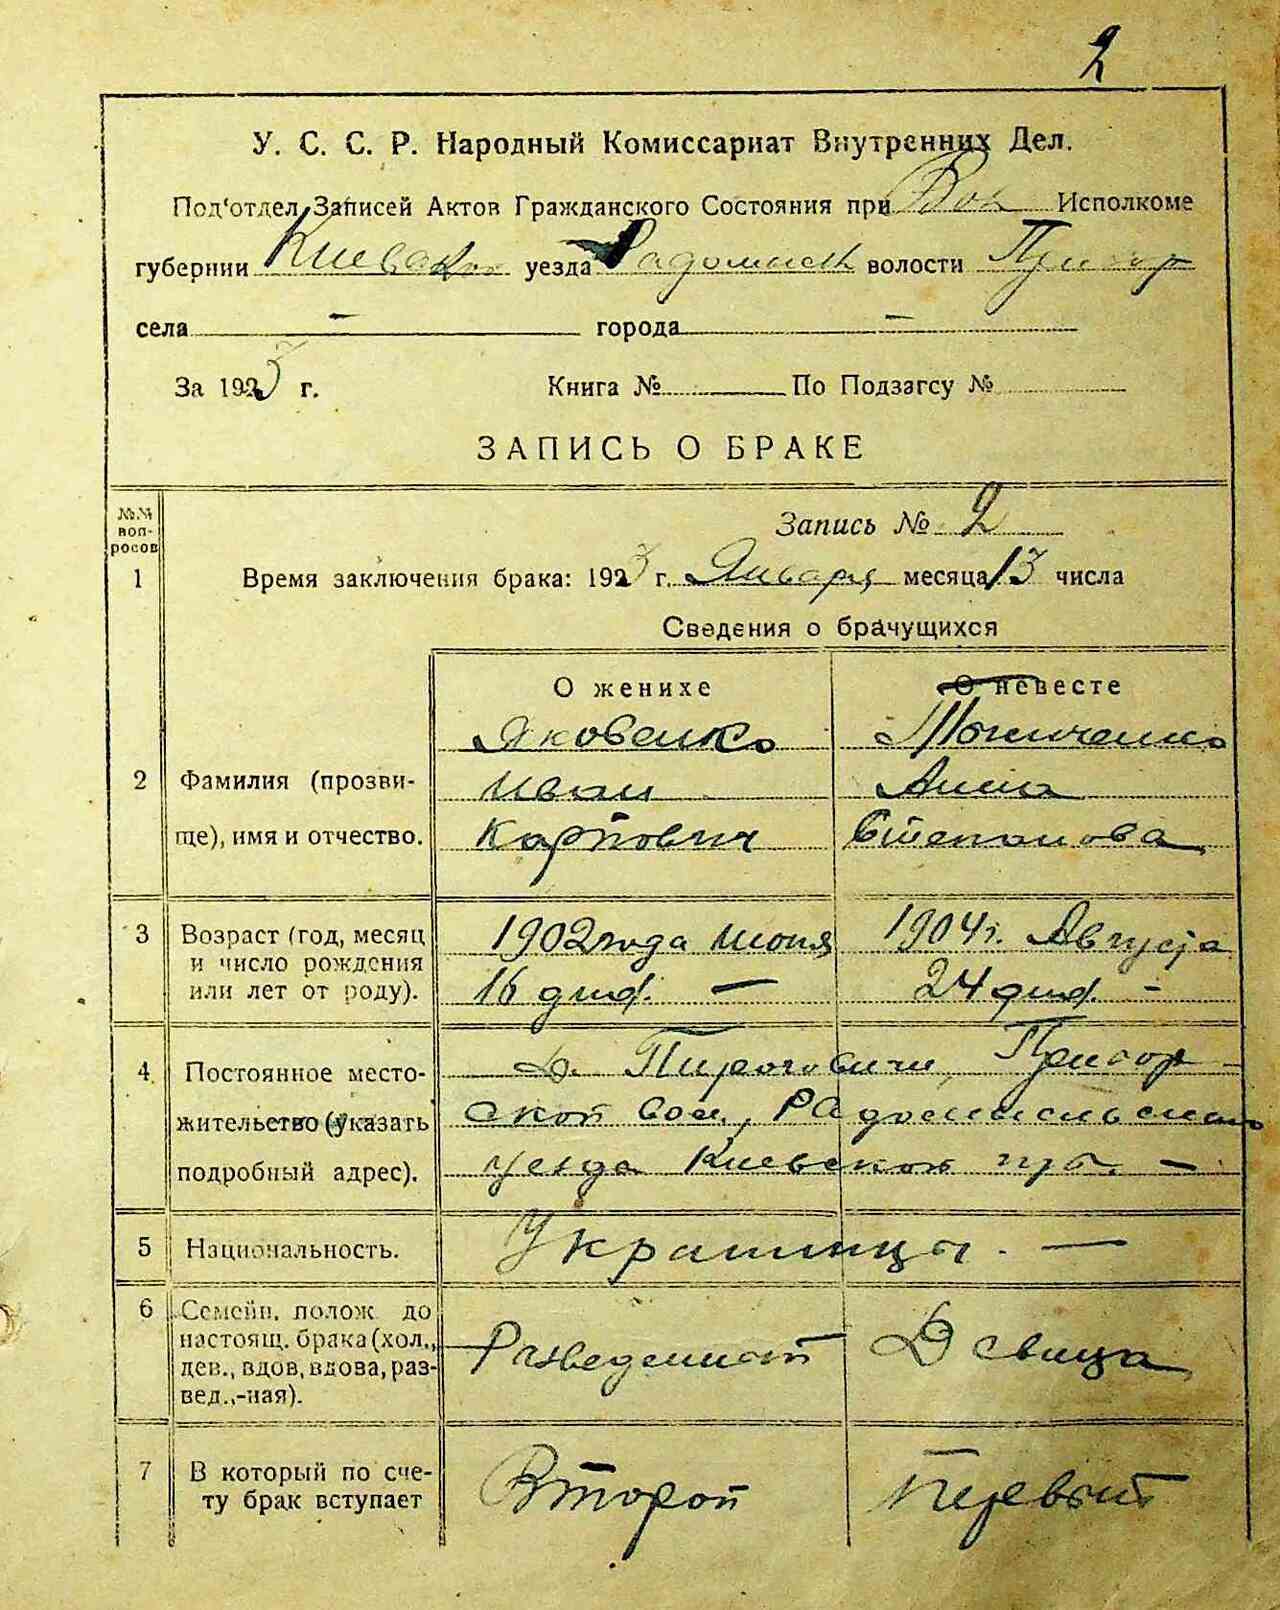 2
У. С. С. Р. Народный Комиссариат Внутренних Дел.
Под'отдел Записей Актов Гражданского Состояния при Вол Исполкоме
губернии Киевской уезда Радомысл волости Прибор
села — города —
За 1923 г. Книга № По Подзагсу №
ЗАПИСЬ О БРАКЕ
№№ вопросов
Запись № 2
1 Время заключения брака: 1923 г. Января месяца 13 числа
Сведения о брачущихся
О женихе О невесте
Яковенко
2 Фамилия (прозви- Иван Анна
ще), имя и отчество. Карпович Степанова
3 Возраст (год, месяц 1902 года июня 1904 г. Августа
и число рождения
или лет от роду). 16 дня. — 24 дня. -
4 Постоянное место- Д. Пироговичи, Прибор
жительство (указать ской вол., Радомысльского
подробный адрес). уезда Киевской губ. —
5 Национальность. Украинцы. —
6 Семейн. полож. до
настоящ. брака (хол., Разведенный Девица
дев., вдов, вдова, раз-
вед.,-ная).
7 В который по сче- Второй Первый
ту брак вступает